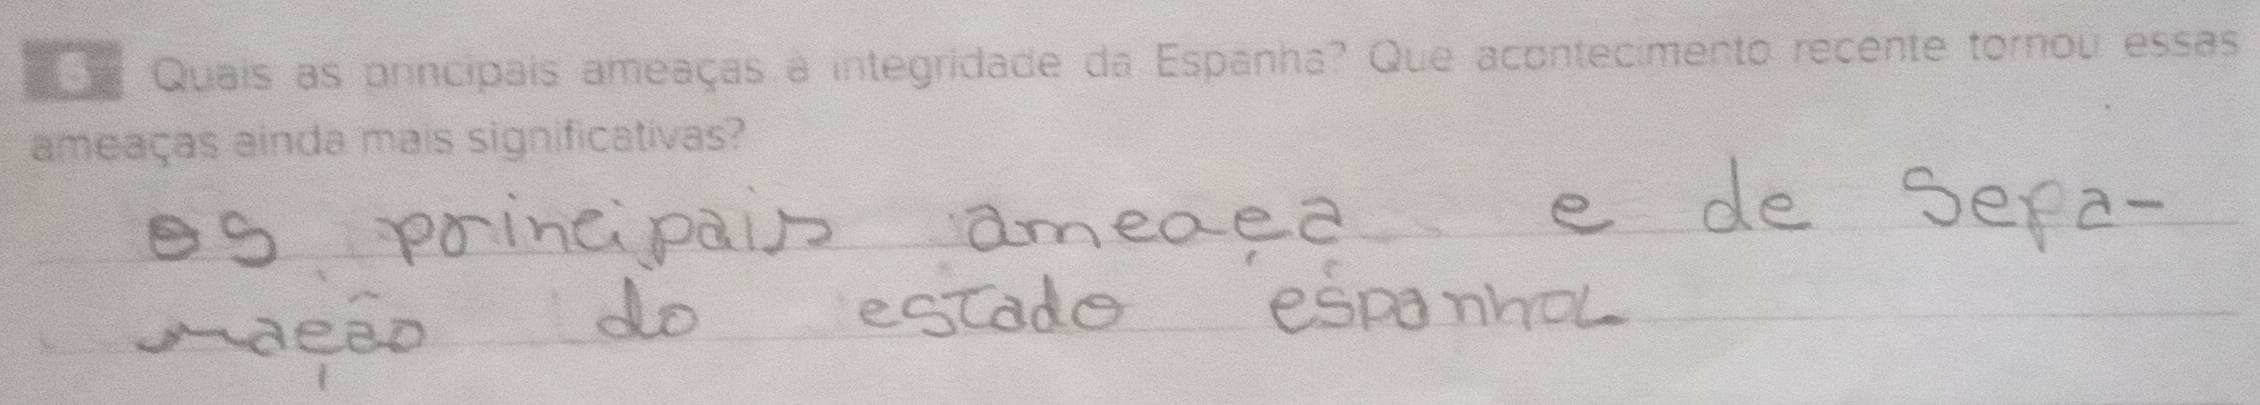 6 Quais as principais ameaças à integridade da Espanha? Que acontecimento recente tornou essas
ameaças ainda mais significativas?
os principais ameaça e de Sepa-
ração do estado espanhol